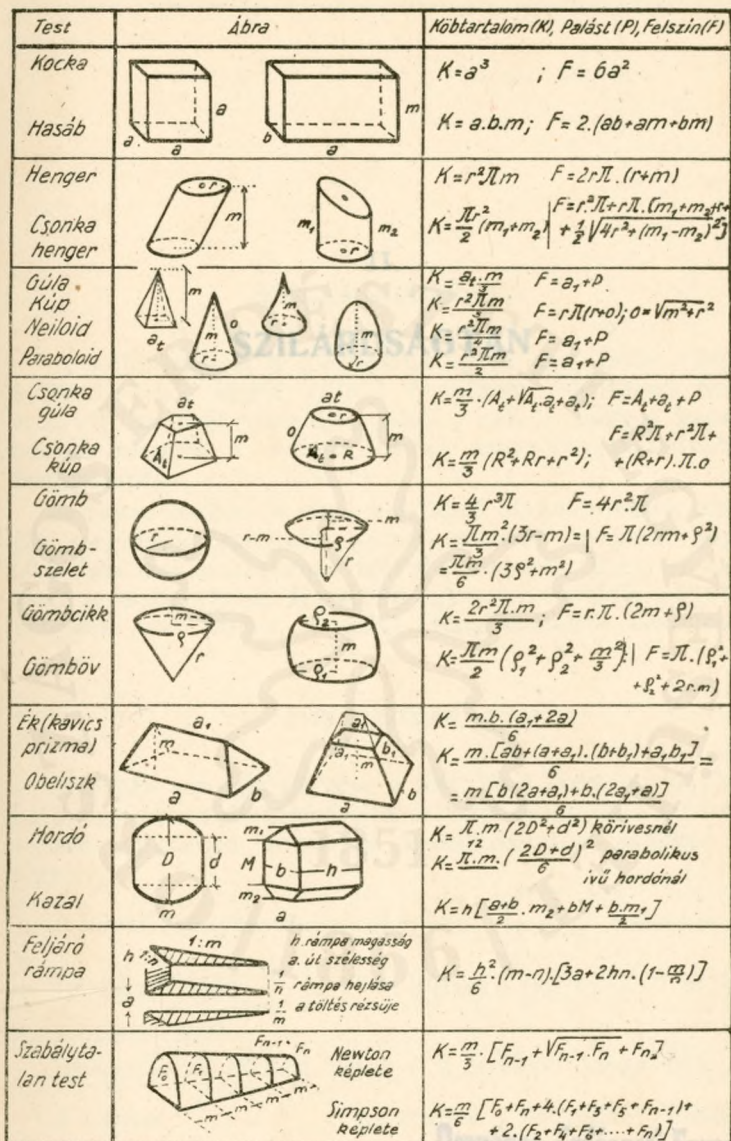 Test Ábra Köbtartalom (K), Palást (P), Felszín (F)
Kocka
a a a
b a m
K=a³ ; F=6a²
Hasáb
K=a.b.m; F=2.(ab+am+bm)
Henger
r m
m₁ m₂ r
K=r²πm F=2rπ.(r+m)
Csonka
henger
K=πr²/2 (m₁+m₂) F=r²π+rπ.(m₁+m₂)+
+½√4r²+(m₁-m₂)²]
Gúla
Kúp
Neiloid
Paraboloid
m aₜ
m o r
m r
m r
K=aₜ.m/3 F=a₁+P
K=r²πm/3 F=rπ(r+o); o=√m²+r²
K=r²πm/4 F=a₁+P
K=r²πm/2 F=a₁+P
Csonka
gúla
Csonka
kúp
at at
Aₜ m
o r m
R
K=m/3.(Aₜ+√Aₜ.aₜ+aₜ); F=Aₜ+aₜ+P
F=R²π+r²π+
K=m/3 (R²+Rr+r²); +(R+r).π.o
Gömb
r
r-m m
ρ r
K=4/3 r³π F=4r².π
Gömb-
szelet
K=πm²/3.(3r-m)= F=π(2rm+ρ²)
=πm/6.(3ρ²+m²)
Gömbcikk
m ρ r
ρ₂ m ρ₁
K=2r²π.m/3; F=r.π.(2m+ρ)
Gömböv
K=πm/2 (ρ₁²+ρ₂²+m²/3); F=π.(ρ₁²+
+ρ₂²+2r.m)
Ék (kavics
prizma)
Obeliszk
a₁ m a b
a₁ a₁ b₁ m a b
K=m.b.(a₁+2a)/6
K=m.[ab+(a+a₁).(b+b₁)+a₁b₁]/6=
=m[b(2a+a₁)+b.(2a₁+a)]/6
Hordó
D d m
m₁ M b h m₂ a
K=π.m/12 (2D²+d²) körívesnél
K=π.m.(2D+d/6)² parabolikus
ívű hordónál
Kazal
K=h[a+b/2.m₂+bM+b.m₁/2]
Feljáró
rámpa
1:m
h 1:n a
h. rámpa magasság
a. út szélesség
1/n rámpa hajlása
1/m a töltés rézsűje
K=h²/6.(m-n).[3a+2hn.(1-m/n)]
Szabályta-
lan test
F₀ F₁ Fₙ₋₁ Fₙ
m m m m
Newton
képlete
K=m/3.[Fₙ₋₁+√Fₙ₋₁.Fₙ+Fₙ]
Simpson
képlete
K=m/6 [F₀+Fₙ+4.(F₁+F₃+F₅+Fₙ₋₁)+
+2.(F₂+F₄+F₆+....+Fₙ)]
1851